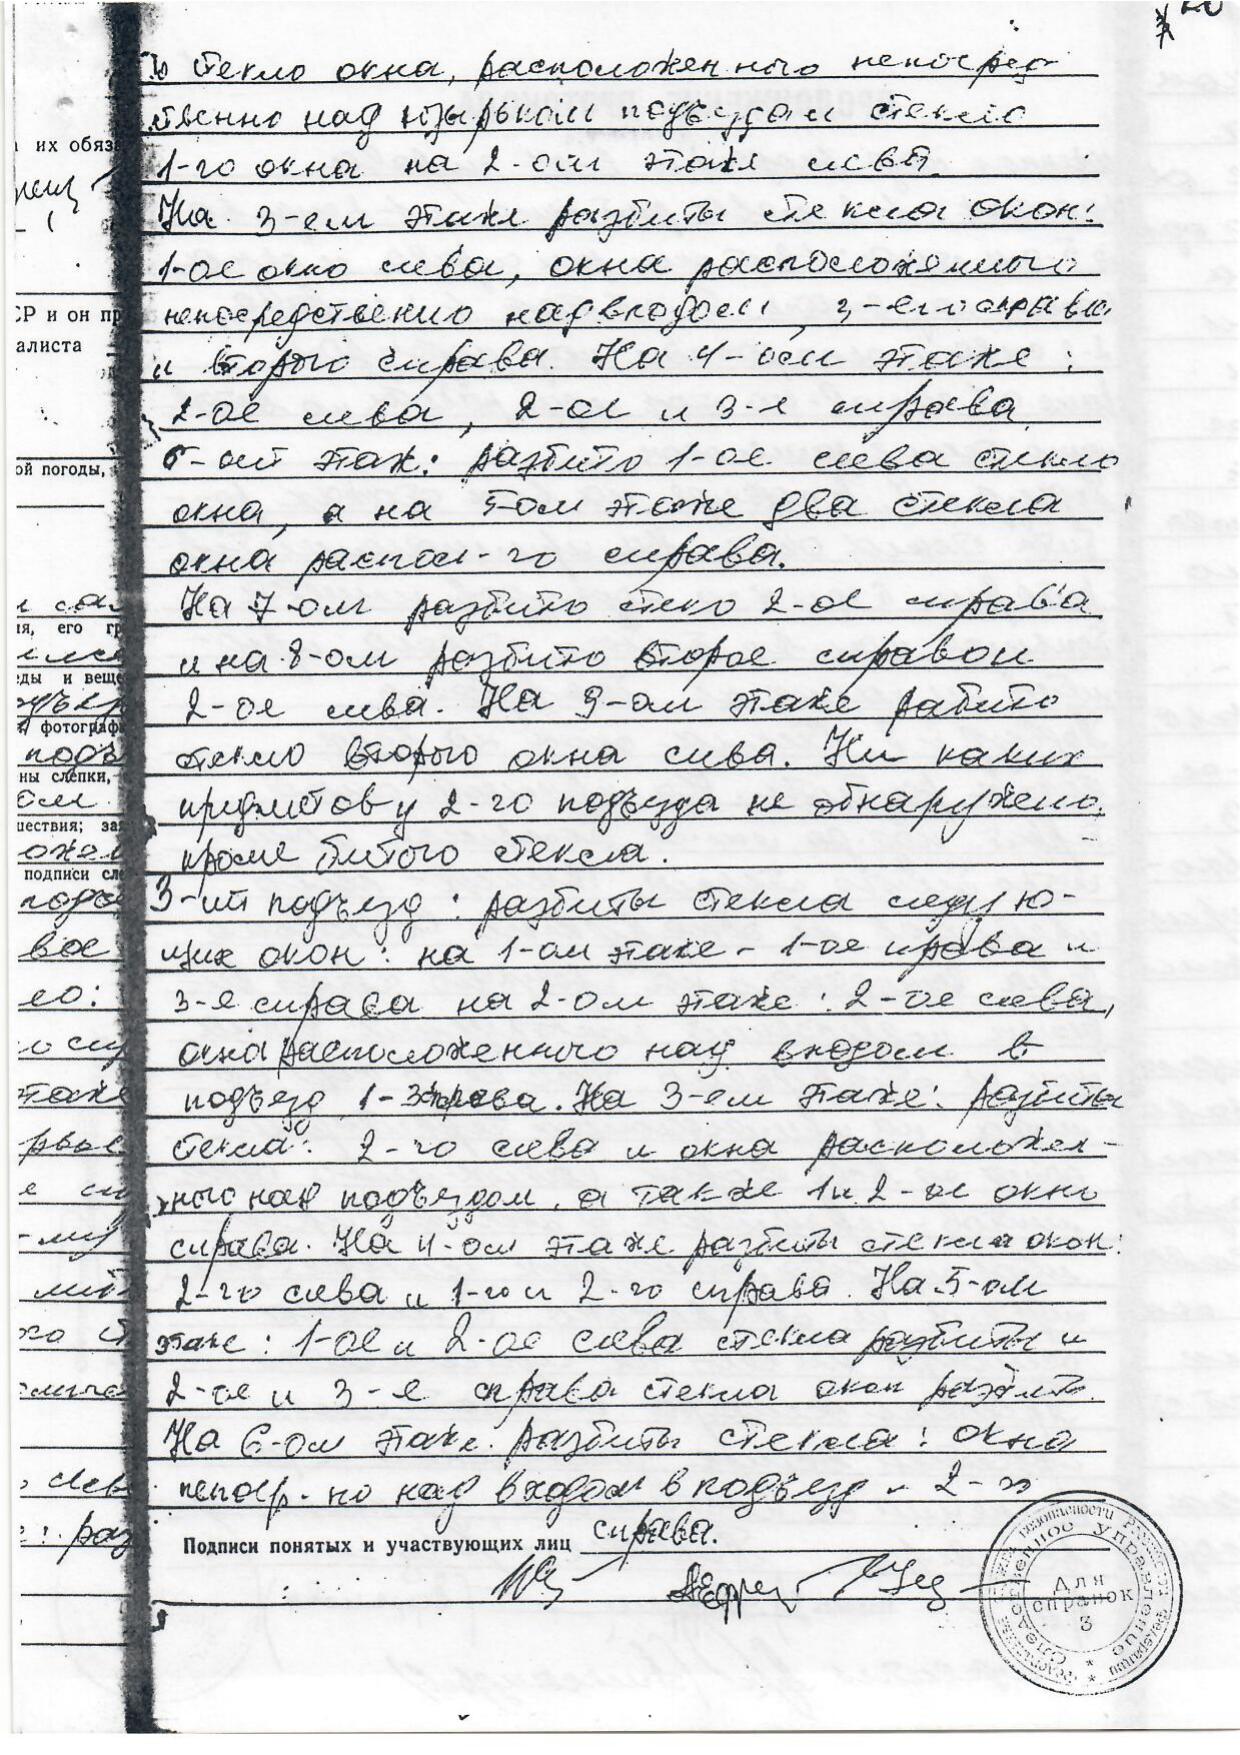 стекло окна, расположенного непосред-
ственно над козырьком подъезда и стекло
1-го окна на 2-ом этаже слева.
На 3-ем этаже разбиты стекла окон:
1-ое окно слева, окна расположенного
непосредственно над входом, 3-его справа
и второго справа. На 4-ом этаже:
2-ое слева, 2-ое и 3-е справа.
6-ой этаж: разбито 1-ое слева стекло
окна, а на 5-ом этаже два стекла
окна распол-го справа.
На 7-ом разбито стекло 2-ое справа
и на 8-ом разбито второе справа и
2-ое слева. На 9-ом этаже рабито
стекло второго окна слева. Ни каких
предметов у 2-го подъезда не обнаружено,
кроме битого стекла.
3-ий подъезд: разбиты стекла следую-
щих окон: на 1-ом этаже - 1-ое справа и
3-е справа на 2-ом этаже: 2-ое слева,
окна расположенного над входом в
подъезд, 1-3 справа. На 3-ем этаже: разбиты
стекла: 2-го слева и окна расположен-
ного над подъездом, а также 1 и 2-ое окно
справа. На 4-ом этаже разбиты стекла окон:
2-го слева и 1-го и 2-го справа. На 5-ом
этаже: 1-ое и 2-ое слева стекла разбиты и
2-ое и 3-е справа стекла окон разбиты.
На 6-ом этаже разбиты стекла: окна
непоср-но над входом в подъезд и 2-го
справа.
Подписи понятых и участвующих лиц
Следственное Управление
Для
справок
3
их обяза
СР и он пр
алиста
ой погоды,
ия, его гр
еды и веще
фотографи
подъ
ны слепки,
ом
шествия; зая
подписи сле
вое
этаже
слев
раз